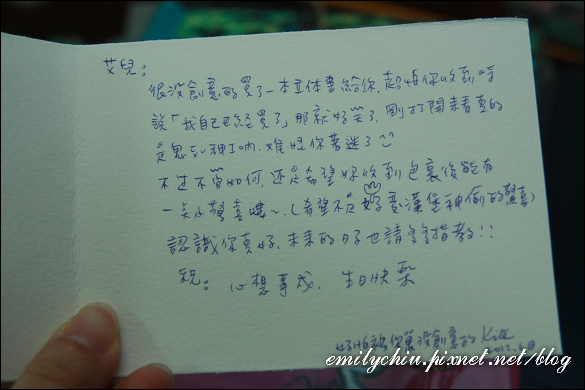 艾兒：
很沒創意的買了一本立体書給你，超怕你收到時
說「我自己已經買了」那就好笑了，剛打開來看真的
是鬼斧神工吶，难怪你著迷了
不过不管如何，还是希望妳收到包裹後能有
一点小驚喜嘿～（希望不是好愛漢堡神偷的驚喜）
認識你真好，未来的日子也請多多指教!!
祝： 心想事成，生日快樂
好怕被你罵沒創意的 Kit
emilychiu.pixnet.net/blog